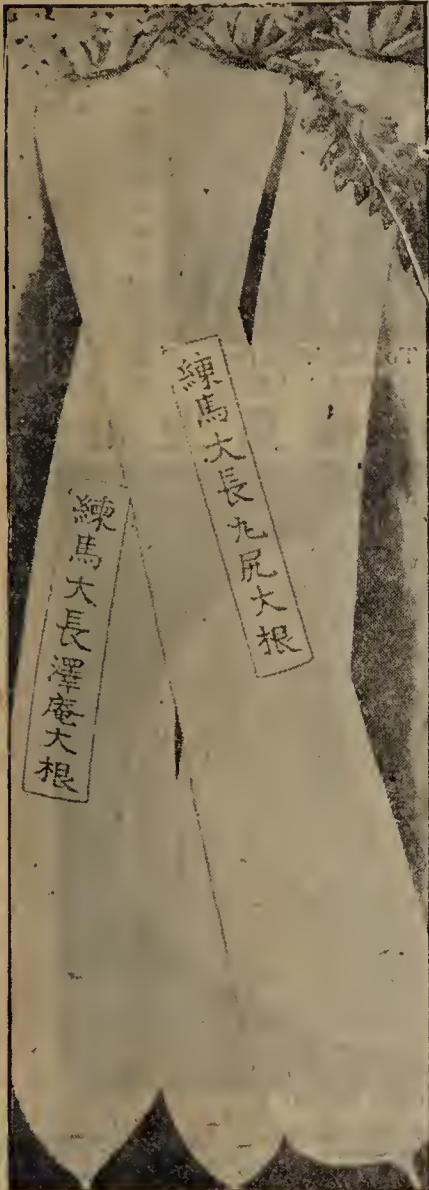 練馬大長丸尻大根
練馬大長澤庵大根